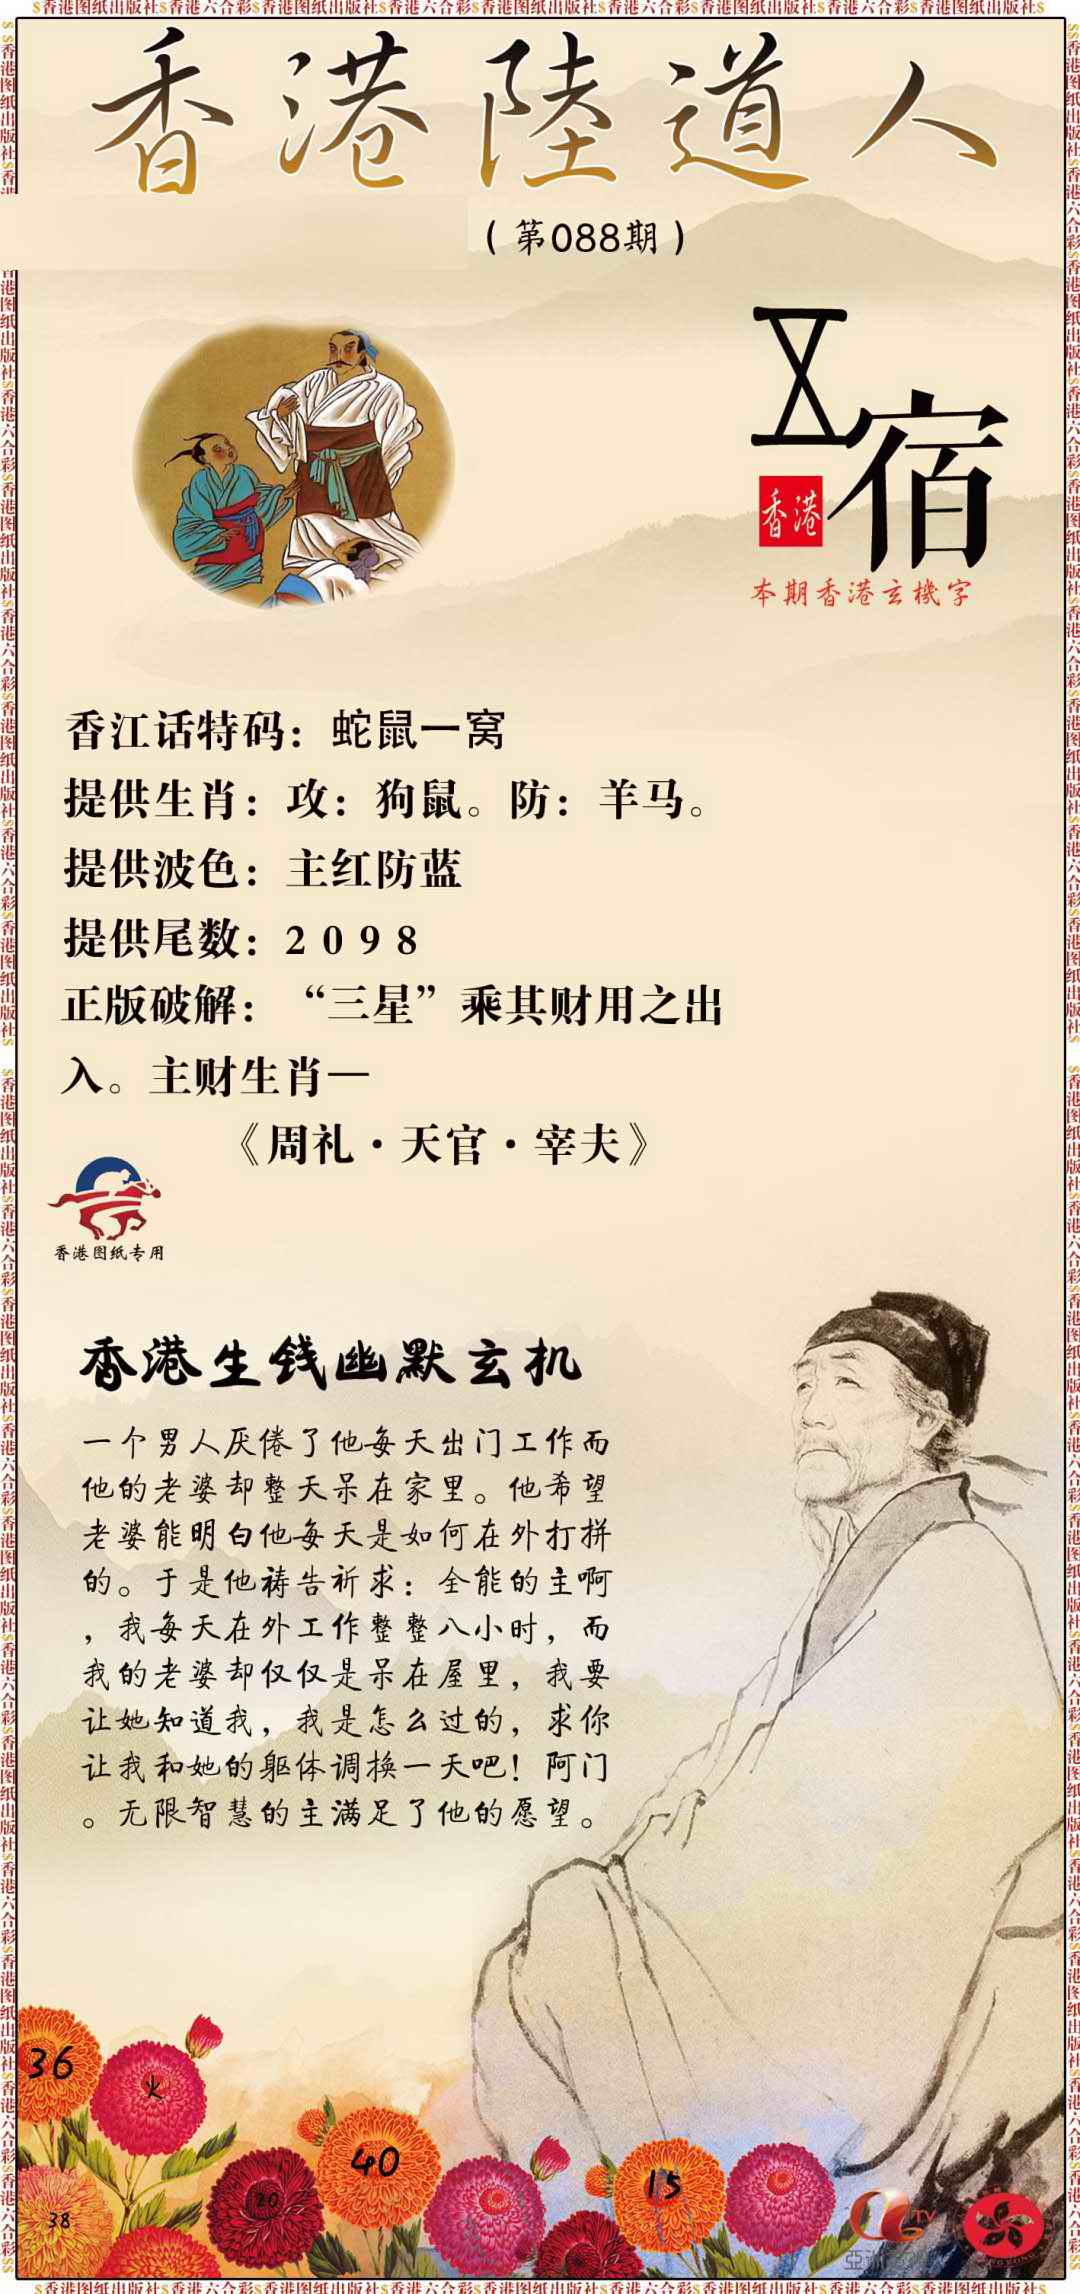 $香港图纸出版社$香港六合彩$香港图纸出版社$香港六合彩$香港图纸出版社$香港六合彩$香港图纸出版社$
香港陸道人
（第088期）
宿
香港
本期香港玄機字
香江话特码：蛇鼠一窝
提供生肖：攻：狗鼠。防：羊马。
提供波色：主红防蓝
提供尾数：2098
正版破解：“三星”乘其财用之出
入。主财生肖—
《周礼·天官·宰夫》
香港图纸专用
香港生钱幽默玄机
一个男人厌倦了他每天出门工作而
他的老婆却整天呆在家里。他希望
老婆能明白他每天是如何在外打拼
的。于是他祷告祈求：全能的主啊
，我每天在外工作整整八小时，而
我的老婆却仅仅是呆在屋里，我要
让她知道我，我是怎么过的，求你
让我和她的躯体调换一天吧！阿门
。无限智慧的主满足了他的愿望。
36
火
40
15
20
38
TV
$香港图纸出版社$香港六合彩$香港图纸出版社$香港六合彩$香港图纸出版社$香港六合彩$香港图纸出版社$